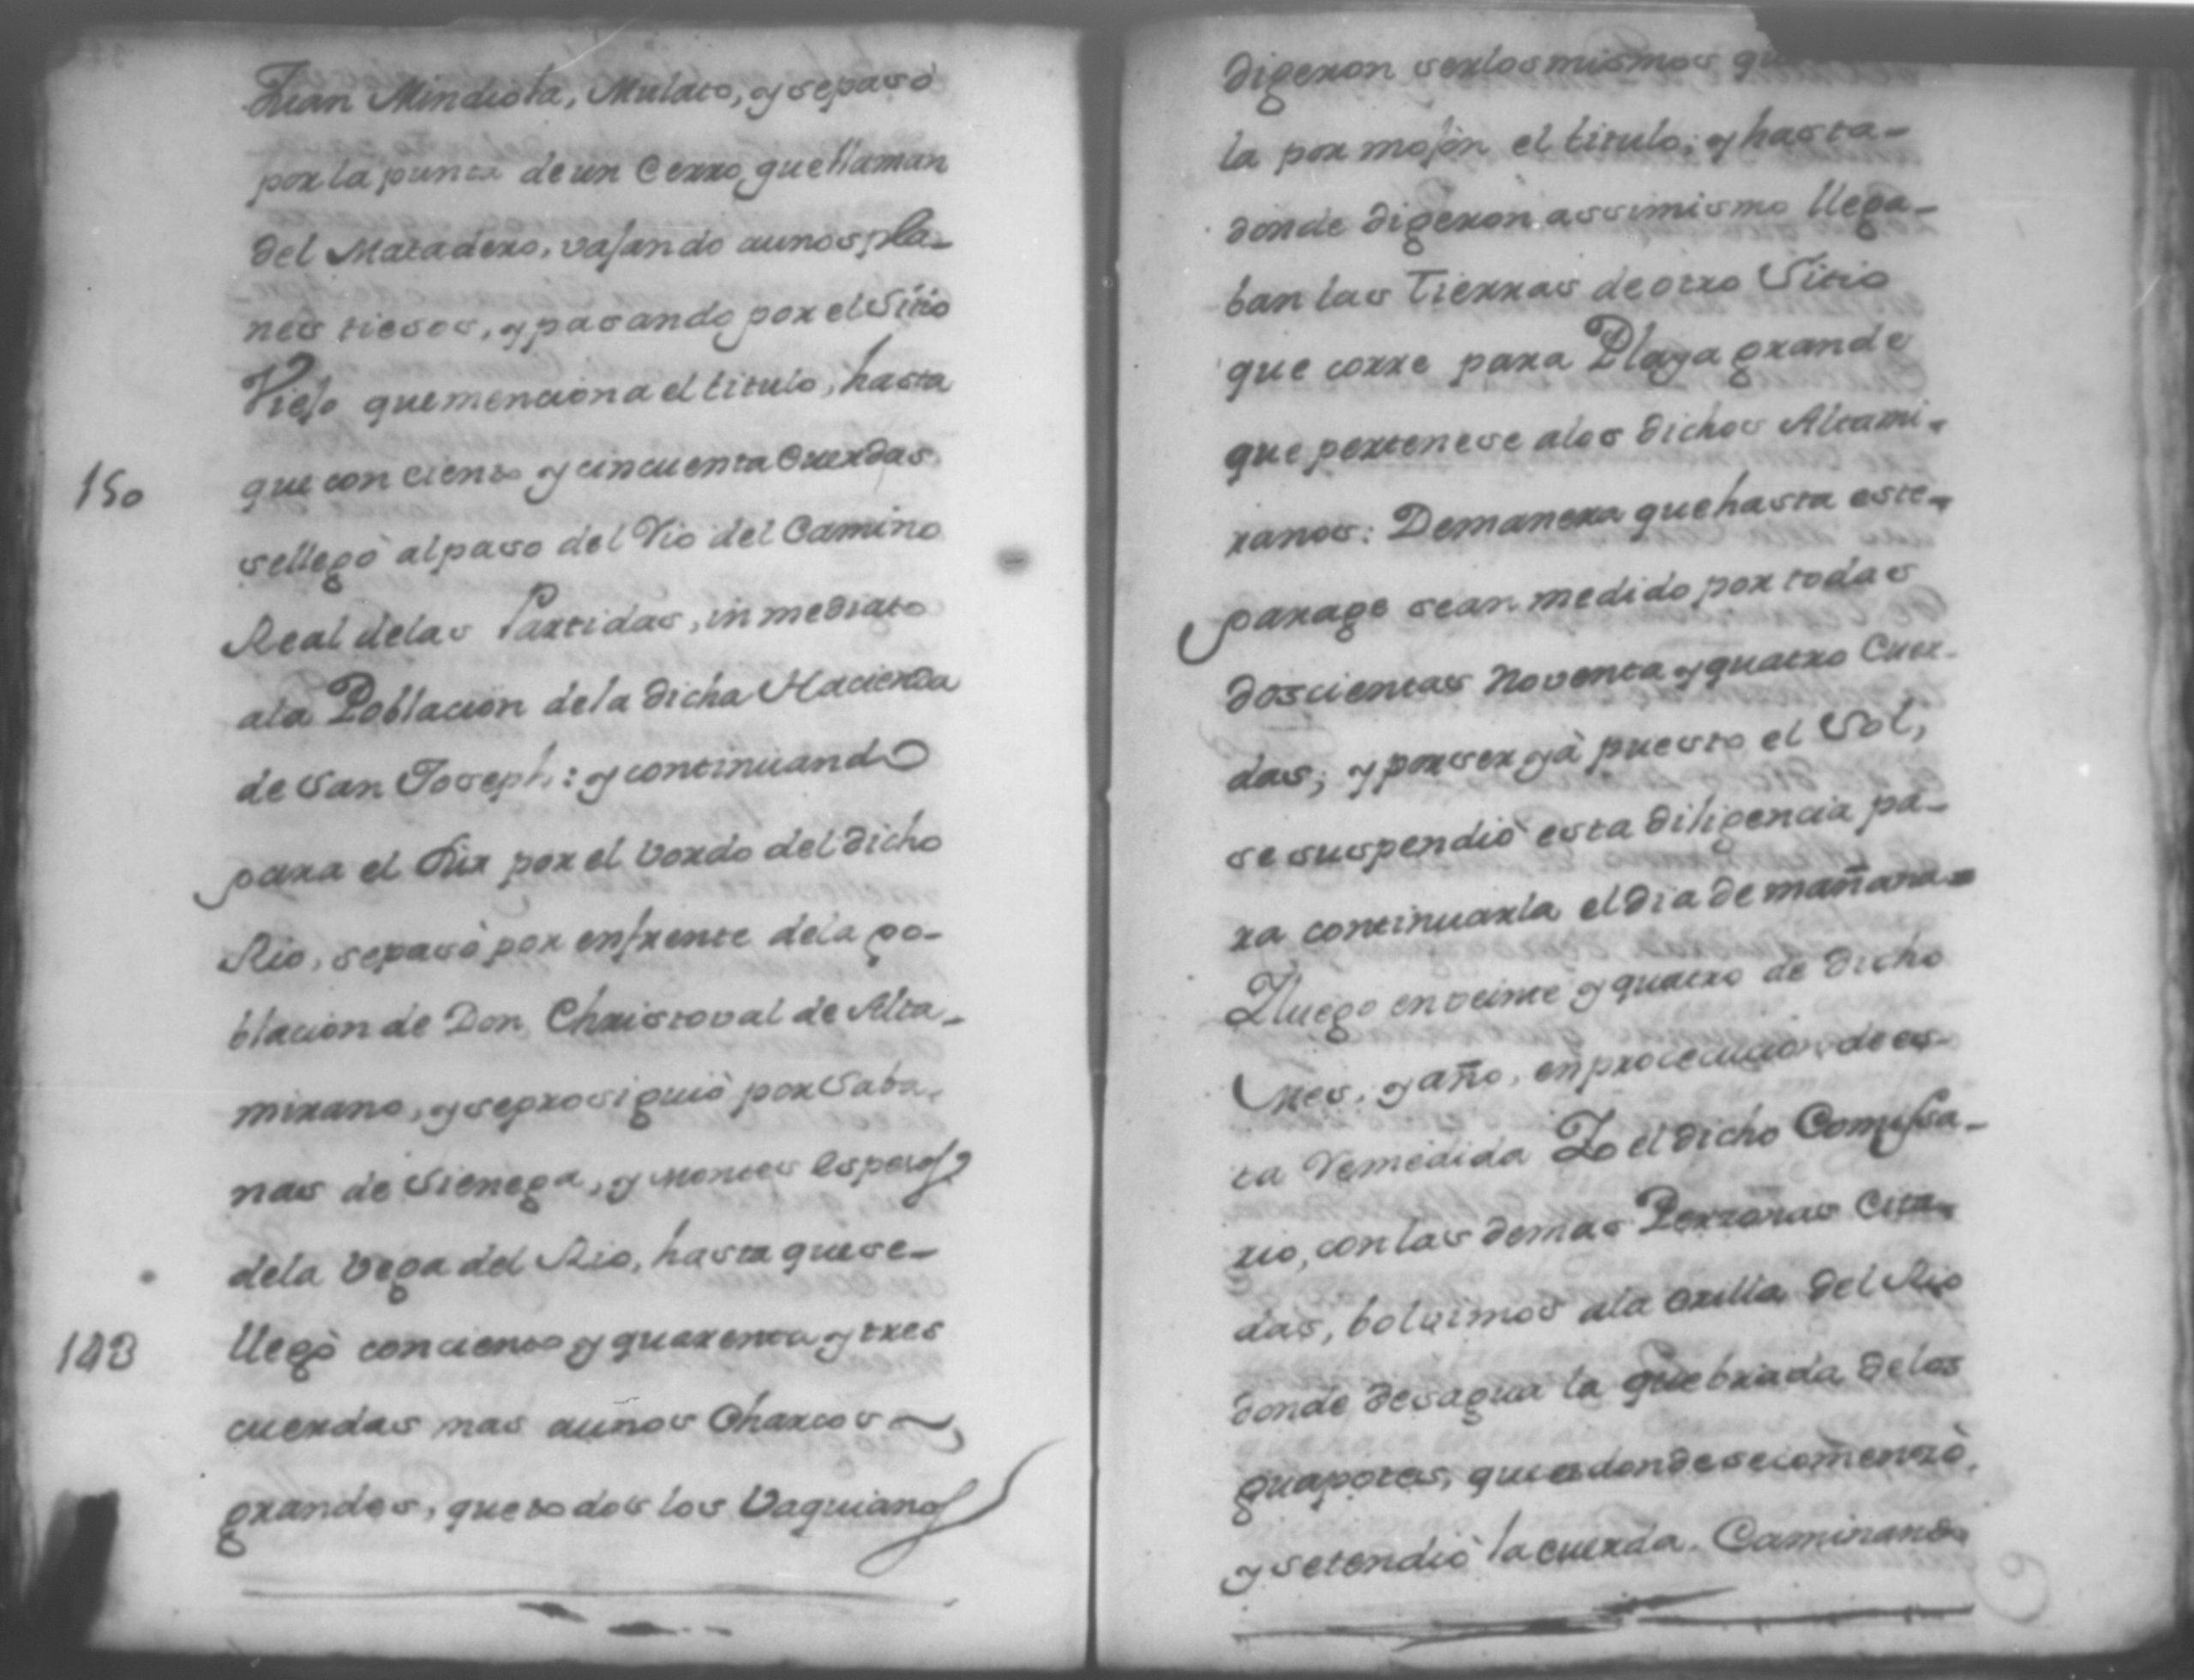 Juan Mindiola, Mulato, y sepasò
por la punta de un Cerro, que llaman
del Matadero, vajando aunos pla-
nes tiesos, y pasando por el Sitio
Viejo que menciona el titulo, hasta
150 que con ciento y cincuenta Cuerdas
sellegò alpaso del Rio del Camino
Real delas Partidas, inmediato
ala Poblacion dela dicha Hacienda
de San Joseph: y continuando
para el Sur por el vordo del dicho
Rio, sepasò por enfrente dela po-
blacion de Don Christoval de Alta-
mirano, y seprosiguiò por Saba-
nas de Sienega, y Montes Espesos
dela Vega del Rio, hasta quese-
143 llegò conciento y quarenta y tres
cuerdas mas aunos Charcos
grandes, quetodos los Vaquianos
digeron serlosmismos
la por mojon el titulo; y hasta-
donde digeron assimismo llega-
ban las Tierras deotro Sitio
que corre para Playa grande
que pertenese alos dichos Altami-
ranos: Demanera quehasta este-
parage sean medido por todas
doscientas Noventa y quatro Cuer-
das; y porser yà puesto el Sol,
se suspendiò esta diligencia pa-
ra continuarla el dia de mañana
Y luego en veinte y quatro de dicho
mes, y año, en procecucion dees-
ta Remedida Yo el dicho Comissa-
rio, con las demas Perzonas Cita-
das, bolvimos ala orilla del Rio
donde desagua la Quebrada delos
guapotes, que es donde secomenzò,
y setendiò la cuerda. Caminando